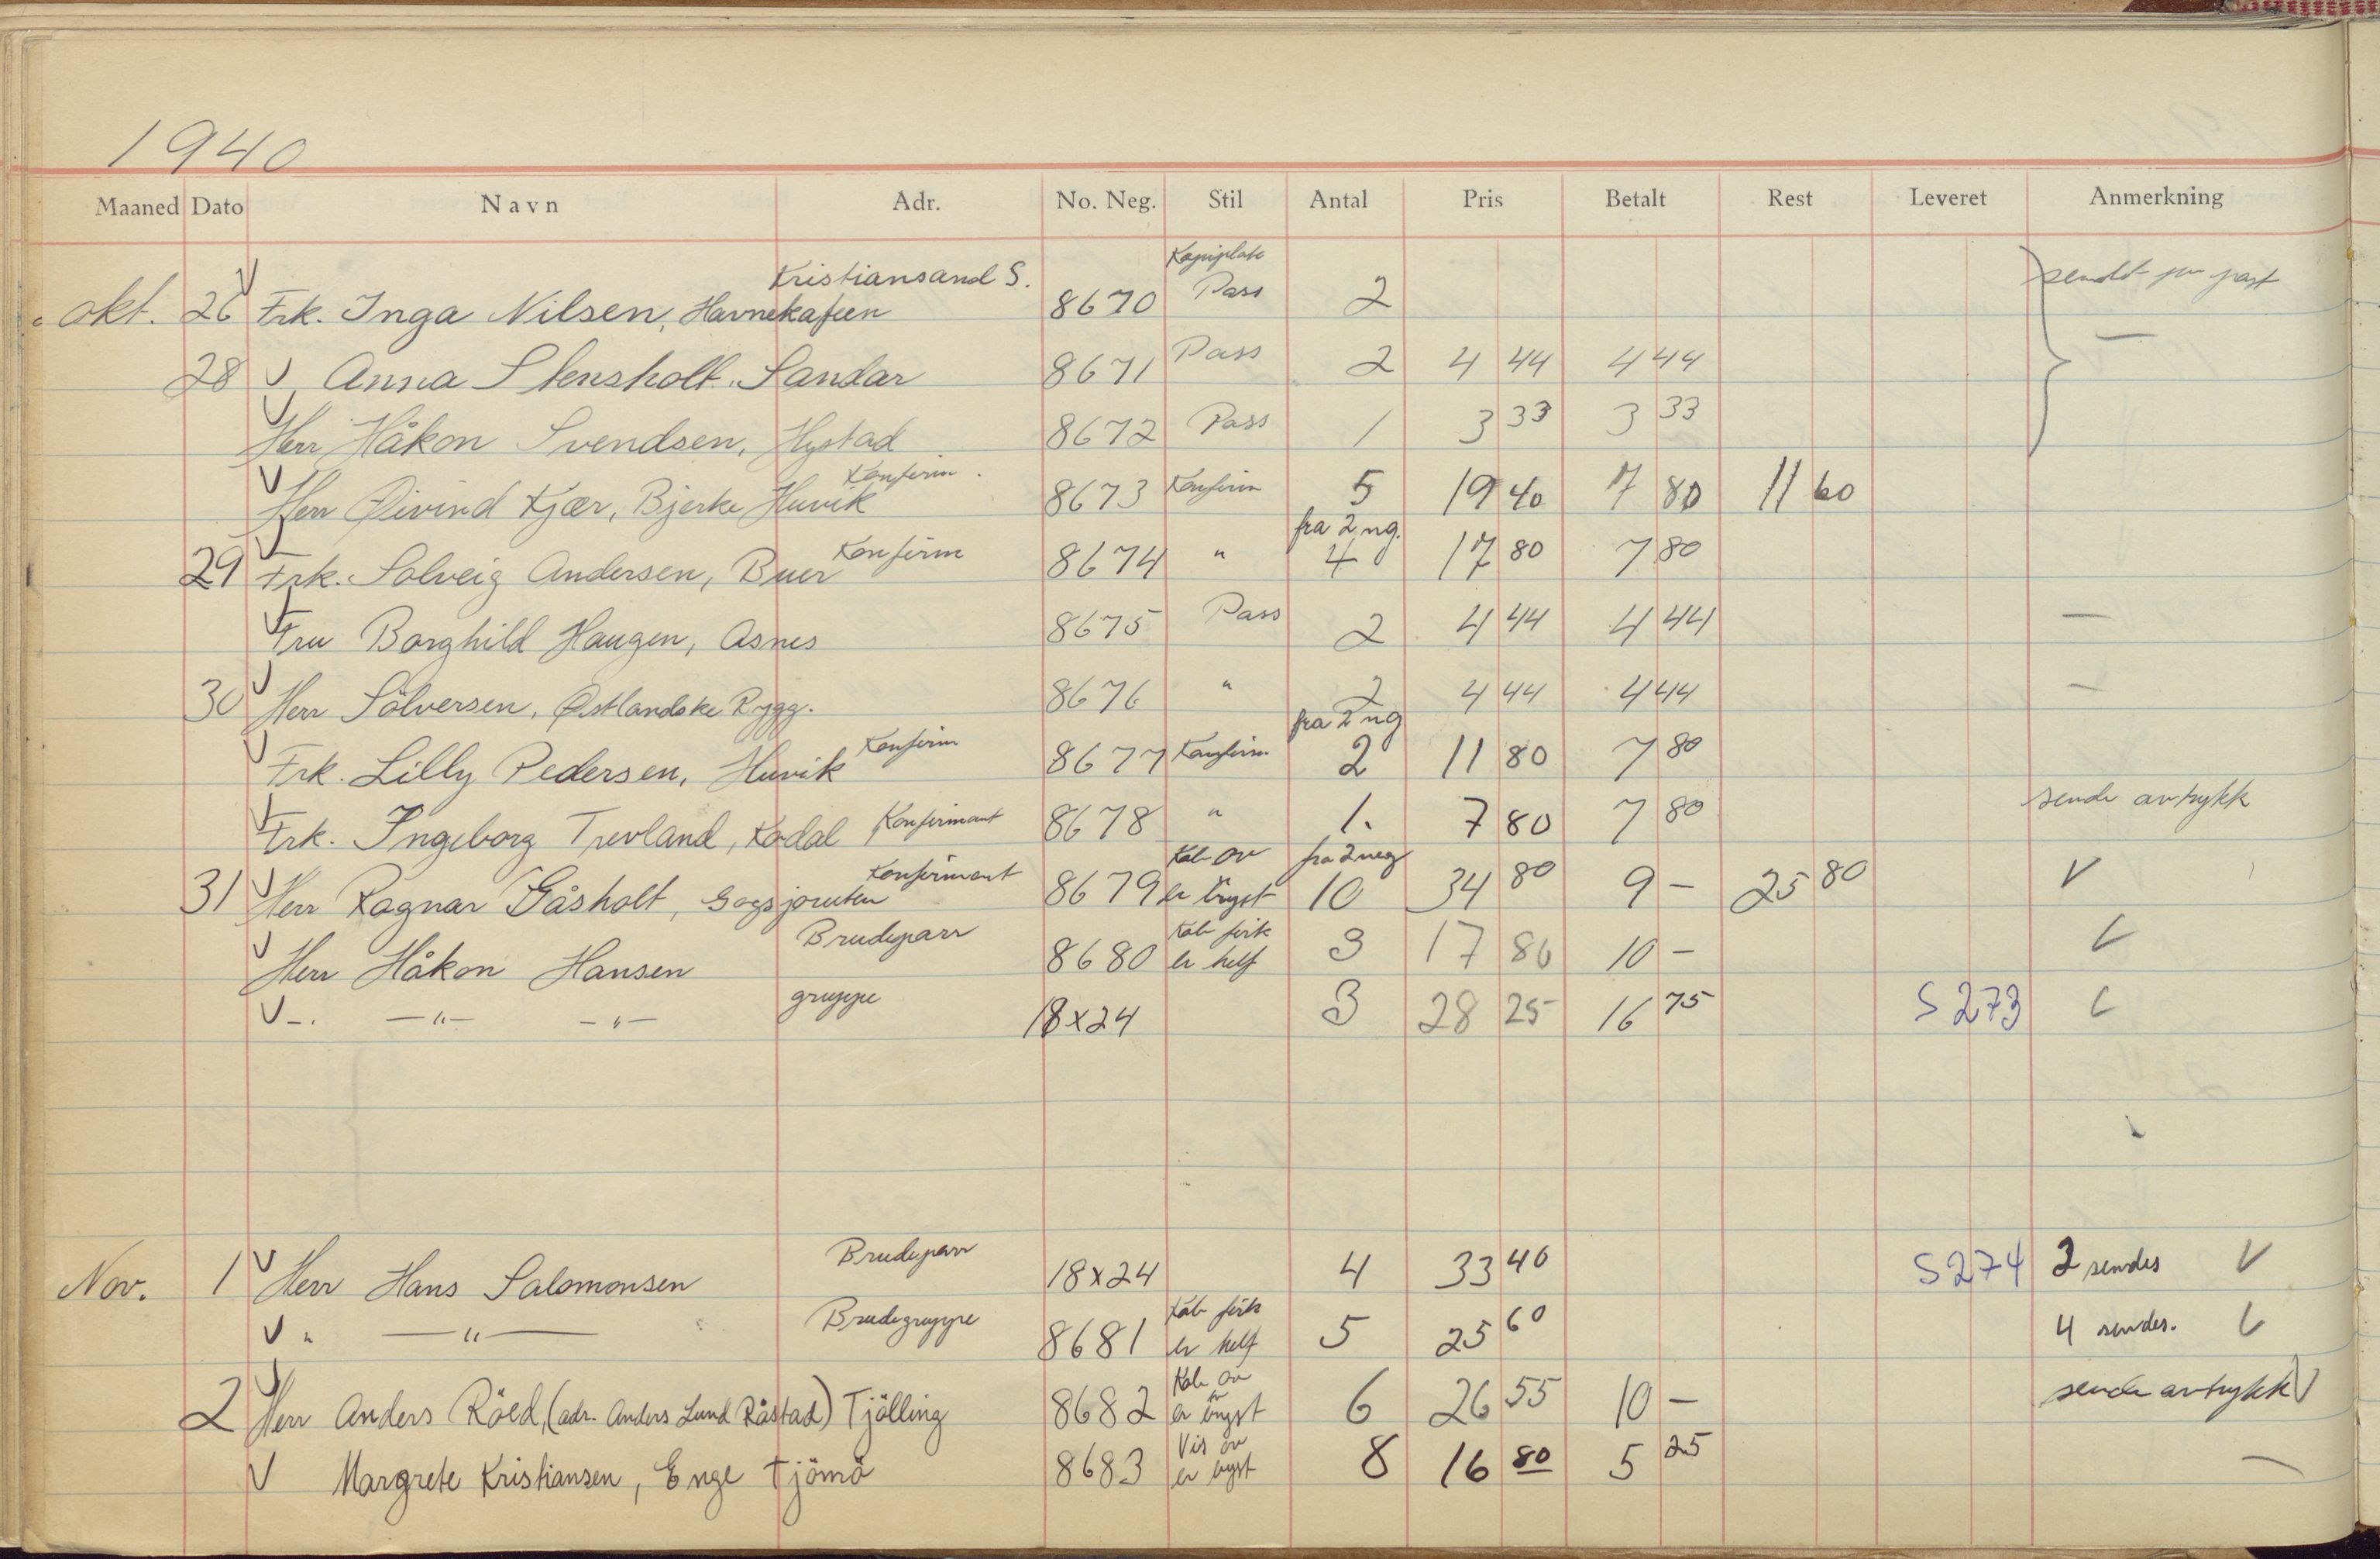 1940
Maaned Dato Navn Adr. No. Neg. Stil Antal Pris Betalt Rest Leveret Anmerkning
Kristiansand S. Kopiplate sendt pr post
okt. 26 V Frk. Inga Nilsen, Havnekafeen 8670 Pass 2
28 V Anna Stensholt. Sandar 8671 Pass 2 4 44 4 44 —
V Herr Håkon Svendsen, Hystad 8672 Pass 1 3 33 3 33
Konfirm.
V Herr Øivind Kjær, Bjerke Huvik 8673 Konfirm 5 19 40 7 80 11 60
Konfirm fra 2 ng.
29 V Frk. Solveig Andersen, Buer 8674 " 4 17 80 7 80
V Fru Borghild Haugen, Asnes 8675 Pass 2 4 44 4 44 —
30 V Herr Sölversen, Østlandske Rygg. 8676 " 2 4 44 4 44 —
Konfirm fra 2 ng
V Frk. Lilly Pedersen, Huvik 8677 Konfirm 2 11 80 7 80
V Frk. Ingeborg Trevland, Kodal Konfirmant 8678 " 1. 7 80 7 80 sende avtrykk
Konfirmant Kab ov fra 2 neg
31 V Herr Ragnar Gåsholt, 8679 er bryst 10 34 80 9 — 25 80 V
Brudeparr Kab
V Herr Håkon Hansen 8680 er helf 3 17 80 10 — V
V —. —"— —"— gruppe 18x24 3 28 25 16 75 S 273 V
Nov. 1 V Herr Hans Salomonsen Brudeparr 18x24 4 33 40 S 274 2 sendes V
Kab
V " —"— Brudegruppe 8681 er helf 5 25 60 4 sendes. V
Kab ov
2 V Herr Anders Röed, (adr. Anders Lund Råstad) Tjölling 8682 er bryst 6 26 55 10 — sende avtrykk V
Vis ov
V Margrete Kristiansen, Enge Tjömö 8683 er bryst 8 16 80 5 25 —